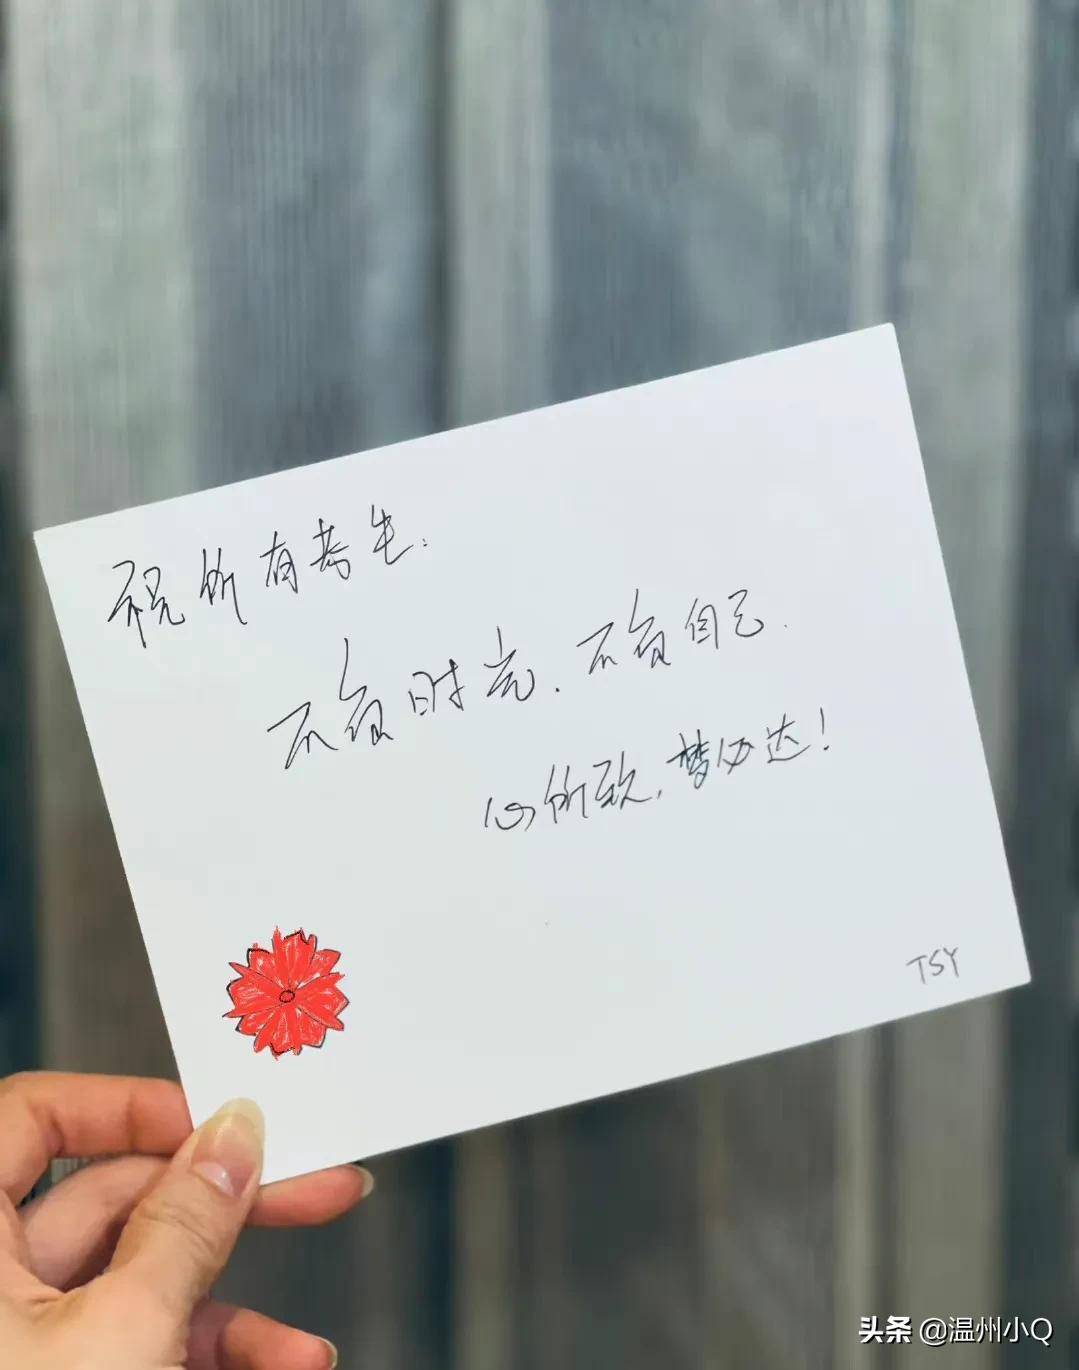 祝所有考生:
不负时光.不负自己.
心所致,梦必达!
TSY
头条 @温州小Q